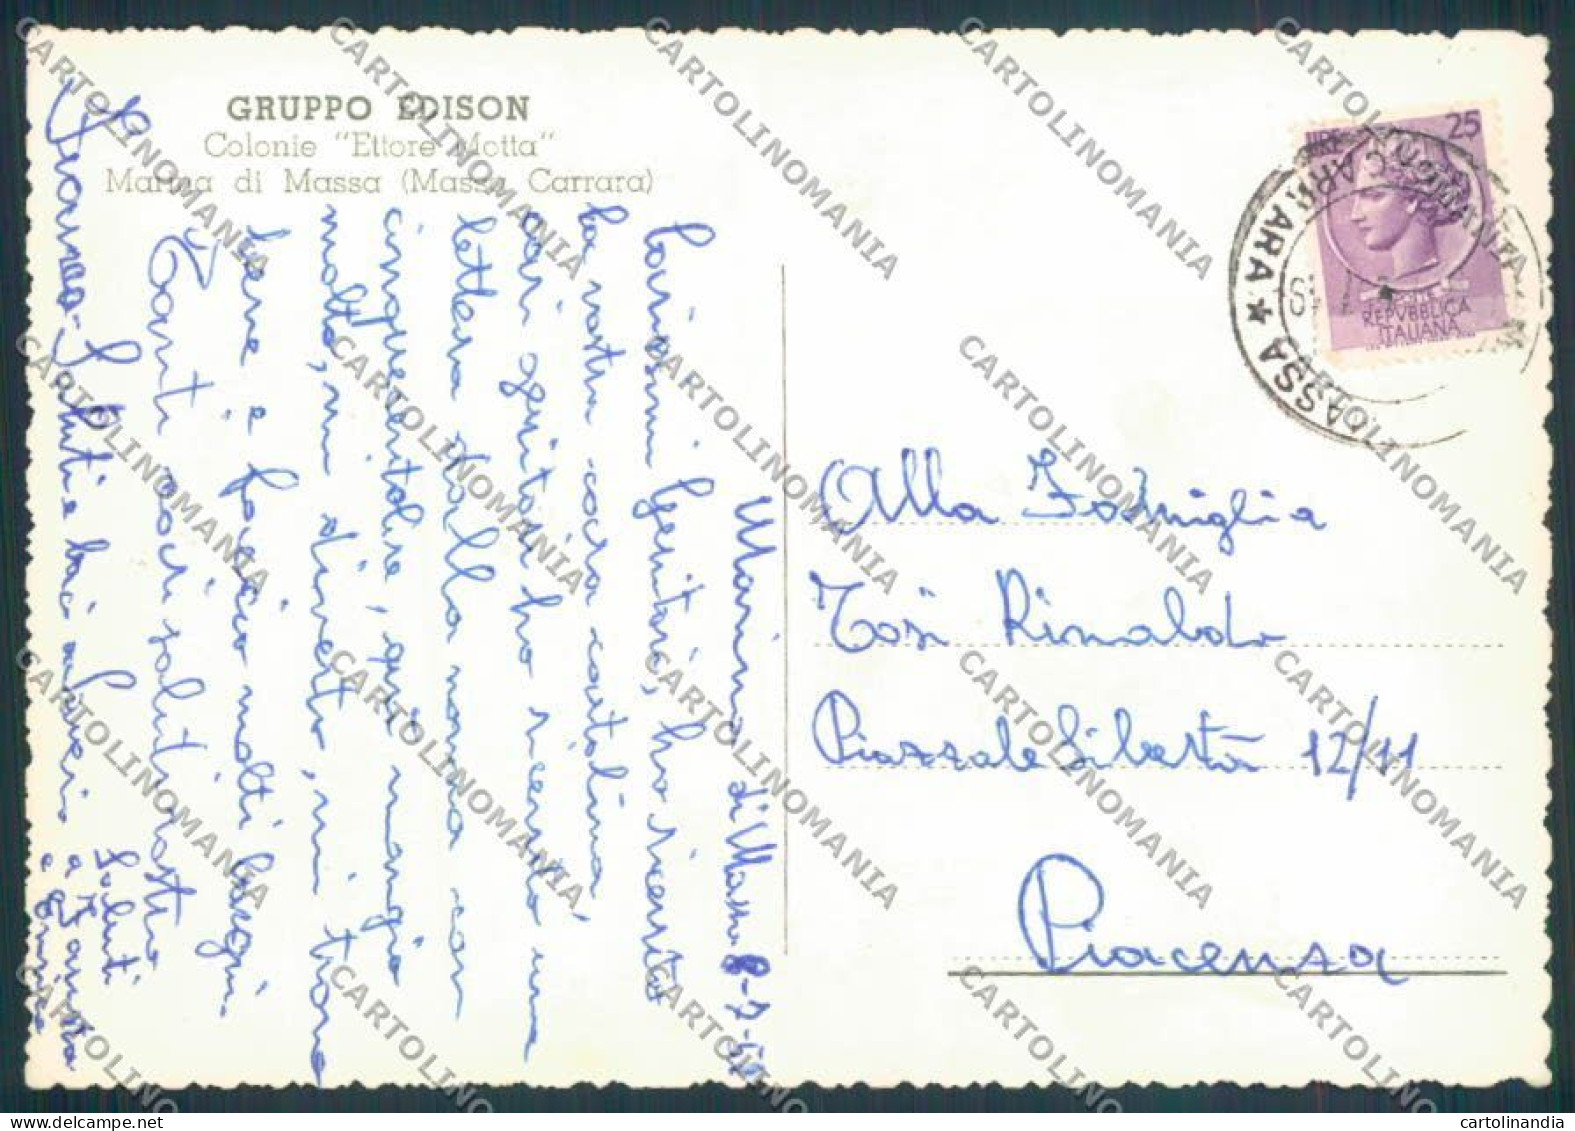 GRUPPO EDISON
Colonie "Ettore Motta"
Marina di Massa (Massa Carrara)
Marina di Massa 8-7-59
Carissimi Genitori, ho ricevuto
la vostra cara cartolina,
cari genitori ho ricevuto una
lettera dalla nonna con
cinquecentolire, qui mangio
molto, mi diverto, mi trovo
bene e faccio molti bagni.
Tanti cari saluti vostro
Franco. Saluti e baci
Saluti
a
e
LIRE 25
POSTE
REPVBBLICA
ITALIANA
MASSA CARRARA
Alla Famiglia
Tosi Rinaldo
Piazzale Libertà 12/11
Piacenza
CARTOLINOMANIA
cartolinandia